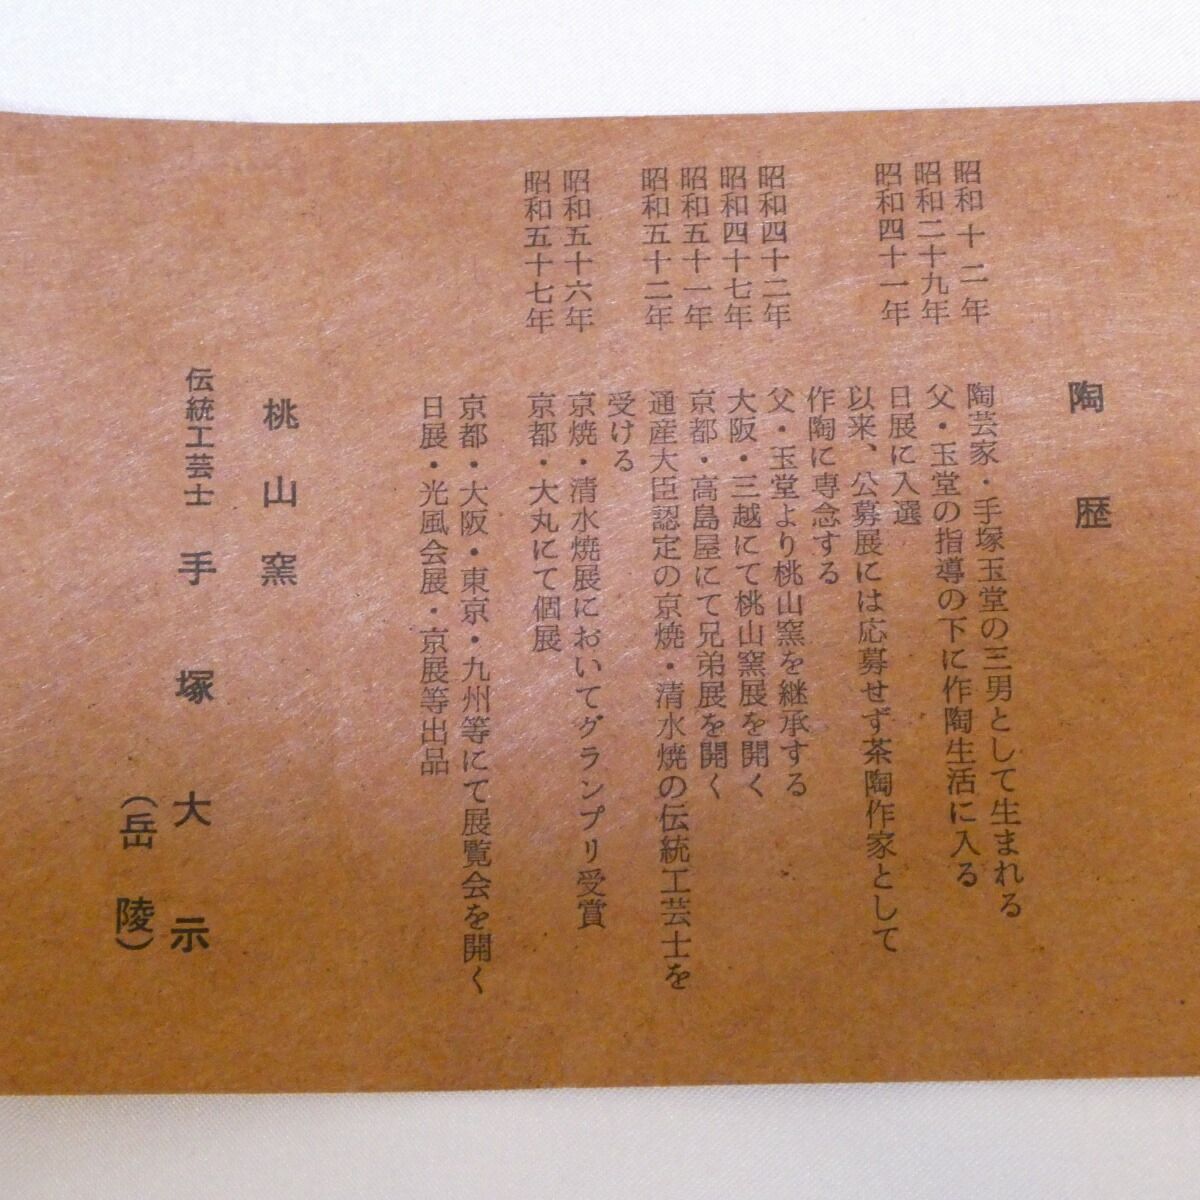 陶歴
昭和十二年 陶芸家・手塚玉堂の三男として生まれる
昭和二十九年 父・玉堂の指導の下に作陶生活に入る
昭和四十一年 日展に入選
以来、公募展には応募せず茶陶作家として
作陶に専念する
昭和四十二年 父・玉堂より桃山窯を継承する
昭和四十七年 大阪・三越にて桃山窯展を開く
昭和五十一年 京都・高島屋にて兄弟展を開く
昭和五十二年 通産大臣認定の京焼・清水焼の伝統工芸士を
受ける
昭和五十六年 京焼・清水焼展においてグランプリ受賞
昭和五十七年 京都・大丸にて個展
京都・大阪・東京・九州等にて展覧会を開く
日展・光風会展・京展等出品
桃山窯
伝統工芸士 手塚大示
（岳陵）